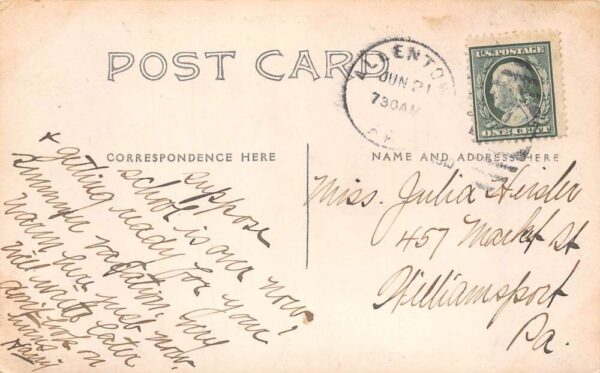 POST CARD
ALLENTOW
JUN 21
7 30 AM
U.S. POSTAGE
ONE CENT
CORRESPONDENCE HERE
NAME AND ADDRESS HERE
suppose
school is over now,
+ getting ready for your
vacation, very
warm here just now.
will write later
don't work on
Harry
Miss. Julia Heisler
457 Markt St
Williamsport
Pa.